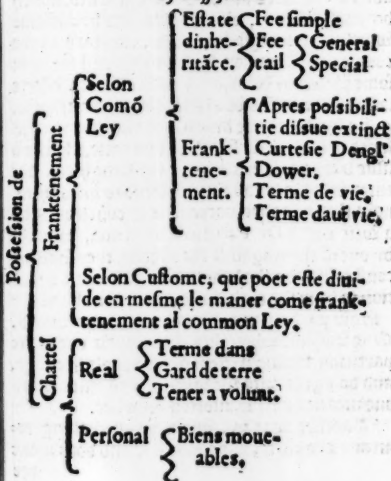 Possession de
Franktenement
Selon
Comõ
Ley
Estate
dinhe-
ritãce.
Fee simple
Fee
tail
General
Special
Frank-
tene-
ment.
Apres possibili-
tie dissue extinct
Curtesie Dengl
Dower.
Terme de vie.
Terme dauť vie.
Selon Custome, que poet este diui-
de en mesme le maner come frank-
tenement al common Ley.
Chattel
Real
Terme dans
Gard de terre
Tener a volunt.
Personal
Biens moue-
ables.